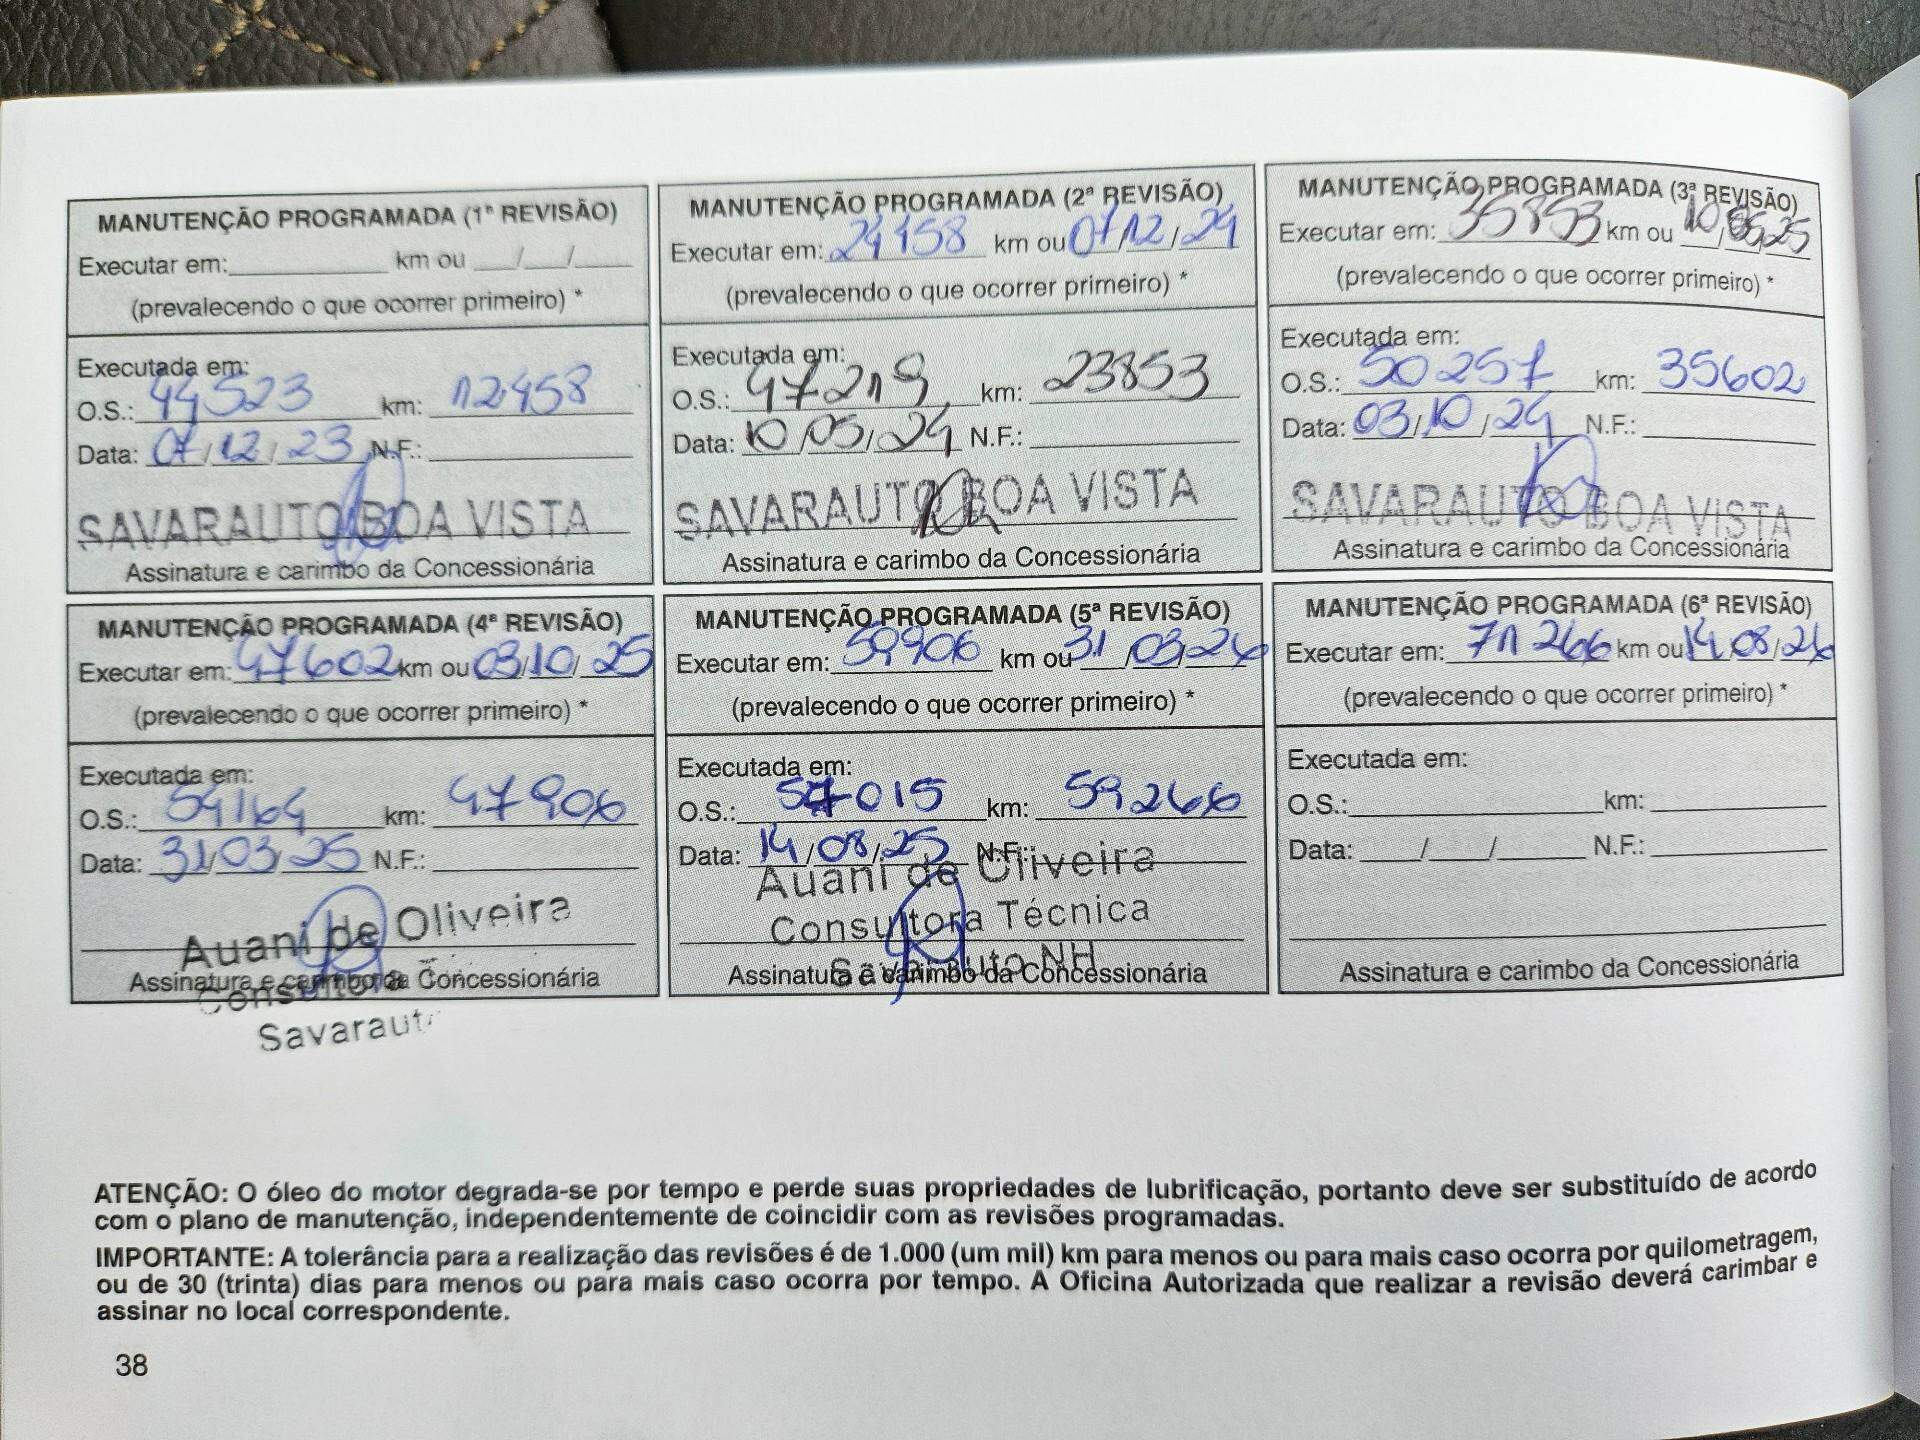 MANUTENÇÃO PROGRAMADA (1ª REVISÃO)
Executar em: km ou / /
(prevalecendo o que ocorrer primeiro) *
Executada em:
O.S.: 44523 km: 12458
Data: 07/12/23 N.F.:
SAVARAUTO BOA VISTA
Assinatura e carimbo da Concessionária
MANUTENÇÃO PROGRAMADA (2ª REVISÃO)
Executar em: 24458 km ou 07/12/24
(prevalecendo o que ocorrer primeiro) *
Executada em:
O.S.: 47219 km: 23853
Data: 10/05/24 N.F.:
SAVARAUTO BOA VISTA
Assinatura e carimbo da Concessionária
MANUTENÇÃO PROGRAMADA (3ª REVISÃO)
Executar em: 35853 km ou 10/05/25
(prevalecendo o que ocorrer primeiro) *
Executada em:
O.S.: 50257 km: 35602
Data: 03/10/24 N.F.:
SAVARAUTO BOA VISTA
Assinatura e carimbo da Concessionária
MANUTENÇÃO PROGRAMADA (4ª REVISÃO)
Executar em: 47602 km ou 03/10/25
(prevalecendo o que ocorrer primeiro) *
Executada em:
O.S.: 54164 km: 47906
Data: 31/03/25 N.F.:
Auani de Oliveira
Assinatura e carimbo da Concessionária
Consultora
Savarauto
MANUTENÇÃO PROGRAMADA (5ª REVISÃO)
Executar em: 59906 km ou 31/03/26
(prevalecendo o que ocorrer primeiro) *
Executada em:
O.S.: 57015 km: 59266
Data: 14/08/25 N.F.:
Auani de Oliveira
Consultora Técnica
Savarauto NH
Assinatura e carimbo da Concessionária
MANUTENÇÃO PROGRAMADA (6ª REVISÃO)
Executar em: 71266 km ou 14/08/26
(prevalecendo o que ocorrer primeiro) *
Executada em:
O.S.: km:
Data: / / N.F.:
Assinatura e carimbo da Concessionária
ATENÇÃO: O óleo do motor degrada-se por tempo e perde suas propriedades de lubrificação, portanto deve ser substituído de acordo
com o plano de manutenção, independentemente de coincidir com as revisões programadas.
IMPORTANTE: A tolerância para a realização das revisões é de 1.000 (um mil) km para menos ou para mais caso ocorra por quilometragem,
ou de 30 (trinta) dias para menos ou para mais caso ocorra por tempo. A Oficina Autorizada que realizar a revisão deverá carimbar e
assinar no local correspondente.
38